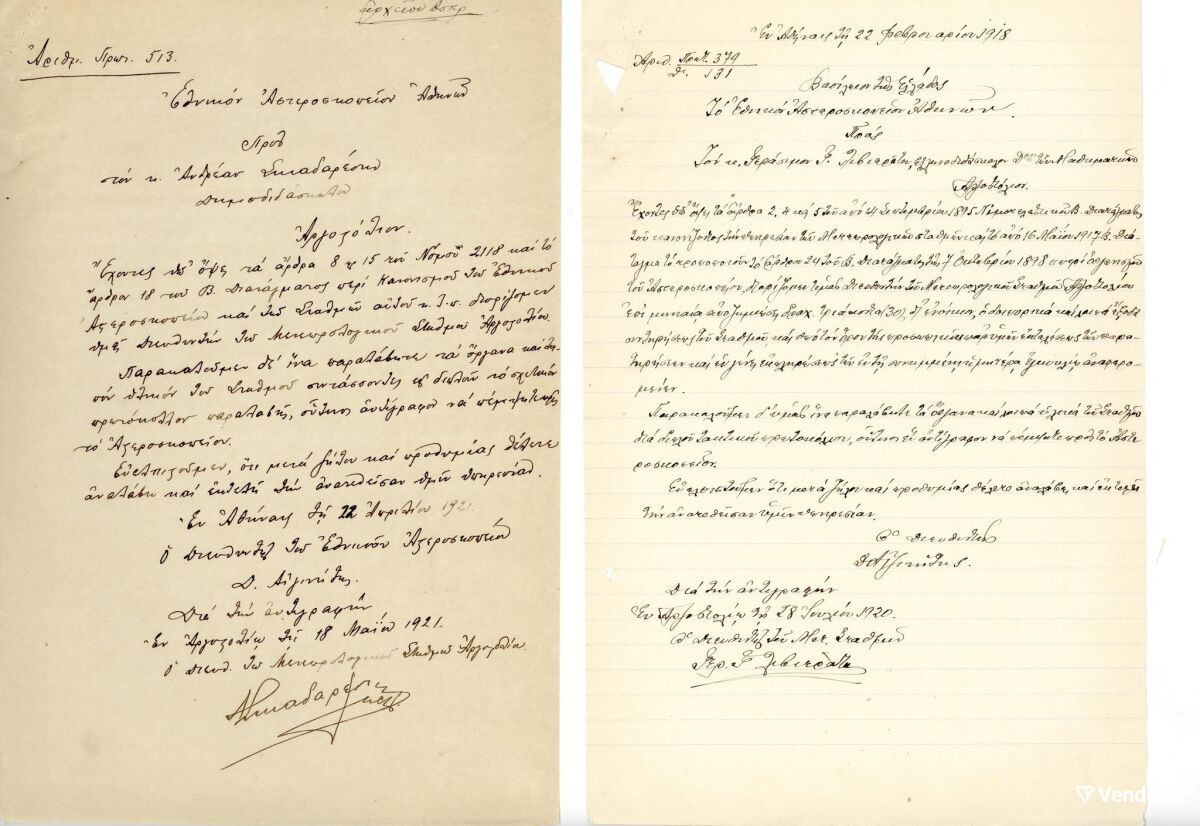 Ἀριθ. Πρωτ. 513.
Ἐθνικὸν Ἀστεροσκοπεῖον Ἀθηνῶν
Πρὸς
τὸν κ. Ἀνδρέαν Σκιαδαρέσην
Δημοδιδάσκαλον
Ἀργοστόλιον.
Ἔχοντες ὑπ' ὄψει τὰ ἄρθρα 8 καὶ 15 τοῦ Νόμου 2118 καὶ τὸ
ἄρθρον 18 τοῦ Β. Διατάγματος περὶ Κανονισμοῦ τοῦ Ἐθνικοῦ
Ἀστεροσκοπείου καὶ τῶν Σταθμῶν αὐτοῦ κ.τ.λ. διορίζομεν
ὑμᾶς Διευθυντὴν τοῦ Μετεωρολογικοῦ Σταθμοῦ Ἀργοστολίου.
Παρακαλοῦμεν δὲ ἵνα παραλάβητε τὰ ὄργανα καὶ
τὸ ὑλικὸν τοῦ Σταθμοῦ συντάσσοντες εἰς διπλοῦν τὸ σχετικὸν
πρωτόκολλον παραλαβῆς, οὗτινος ἀντίγραφον νὰ πέμψητε εἰς
τὸ Ἀστεροσκοπεῖον.
Εὐελπιστοῦμεν, ὅτι μετὰ ζήλου καὶ προθυμίας θέλετε
ἀναλάβει καὶ ἐκτελῆ τὴν ἀνατεθεῖσαν ὑμῖν ὑπηρεσίαν.
Ἐν Ἀθήναις τῇ 22 Ἀπριλίου 1921.
Ὁ Διευθυντὴς τοῦ Ἐθνικοῦ Ἀστεροσκοπείου
Δ. Αἰγινήτης.
Διὰ τὴν ἀντιγραφὴν
Ἐν Ἀργοστολίῳ τῇ 18 Μαΐου 1921.
Ὁ Διευθ. τοῦ Μετεωρολογικοῦ Σταθμοῦ Ἀργοστολίου.
Ἐν Ἀθήναις τῇ 22 Φεβρουαρίου 1918
Ἀριθ. Πρωτ. 379
Δι. 131
Βασίλειον τῆς Ἑλλάδος
Τὸ Ἐθνικὸν Ἀστεροσκοπεῖον Ἀθηνῶν.
Πρὸς
Τὸν κ. Γεράσιμον Γ. Λιβιεράτον, ἑλληνοδιδάσκαλον
Ἀργοστόλιον.
Ἔχοντες ὑπ' ὄψει τὰ ἄρθρα 2, 4 καὶ 5 τοῦ ἀπὸ 14 Σεπτεμβρίου 1895 Β. Διατάγματος
τοῦ κανονίζοντος τὴν ὑπηρεσίαν τῶν Μετεωρολογικῶν σταθμῶν καὶ τὸ ἀπὸ 16 Μαΐου 1917 Β. Διά-
ταγμα τὸ τροποποιοῦν τὸ ἄρθρον 24 τοῦ Β. Διατάγματος τῆς 7 Ὀκτωβρίου
τοῦ Ἀστεροσκοπείου, διορίζομεν ὑμᾶς Διευθυντὴν τοῦ Μετεωρολογικοῦ Σταθμοῦ Ἀργοστολίου
ἐπὶ μηνιαίᾳ ἀποζημιώσει δραχ. τριάκοντα (30), δι' ἐνοίκιον, ὁδοιπορικὰ καὶ λοιπὰ ἔξοδα
συντηρήσεως τοῦ σταθμοῦ, καὶ ὑπὸ τὸν ὅρον τῆς προσωπικῆς παρ' ὑμῶν ἐκτελέσεως τῶν παρα-
τηρήσεων καὶ ἐν γένει ἐκπληρώσεως τῶν ἐν τῇ συνημμένῃ ἡμετέρᾳ ἐγκυκλίῳ ἀναφερο-
μένων.
Παρακαλοῦμεν δ' ὑμᾶς ἵνα παραλάβητε τὰ ὄργανα καὶ λοιπὰ ὑλικὰ τοῦ Σταθμοῦ
διὰ διπλοῦ τακτικοῦ πρωτοκόλλου, οὗτινος ἓν ἀντίγραφον νὰ πέμψητε πρὸς τὸ Ἀστε-
ροσκοπεῖον.
Εὐελπιστοῦμεν ὅτι μετὰ ζήλου καὶ προθυμίας θέλετε ἀναλάβει καὶ ἐκτελῆ
τὴν ἀνατεθεῖσαν ὑμῖν ὑπηρεσίαν.
Ὁ Διευθυντὴς
Δ. Αἰγινήτης.
Διὰ τὴν ἀντιγραφήν
Ἐν Ἀργοστολίῳ τῇ 28 Ἰουλίου 1920.
Ὁ Διευθυντὴς τοῦ Μετ. Σταθμοῦ
Γερ. Γ. Λιβιεράτος